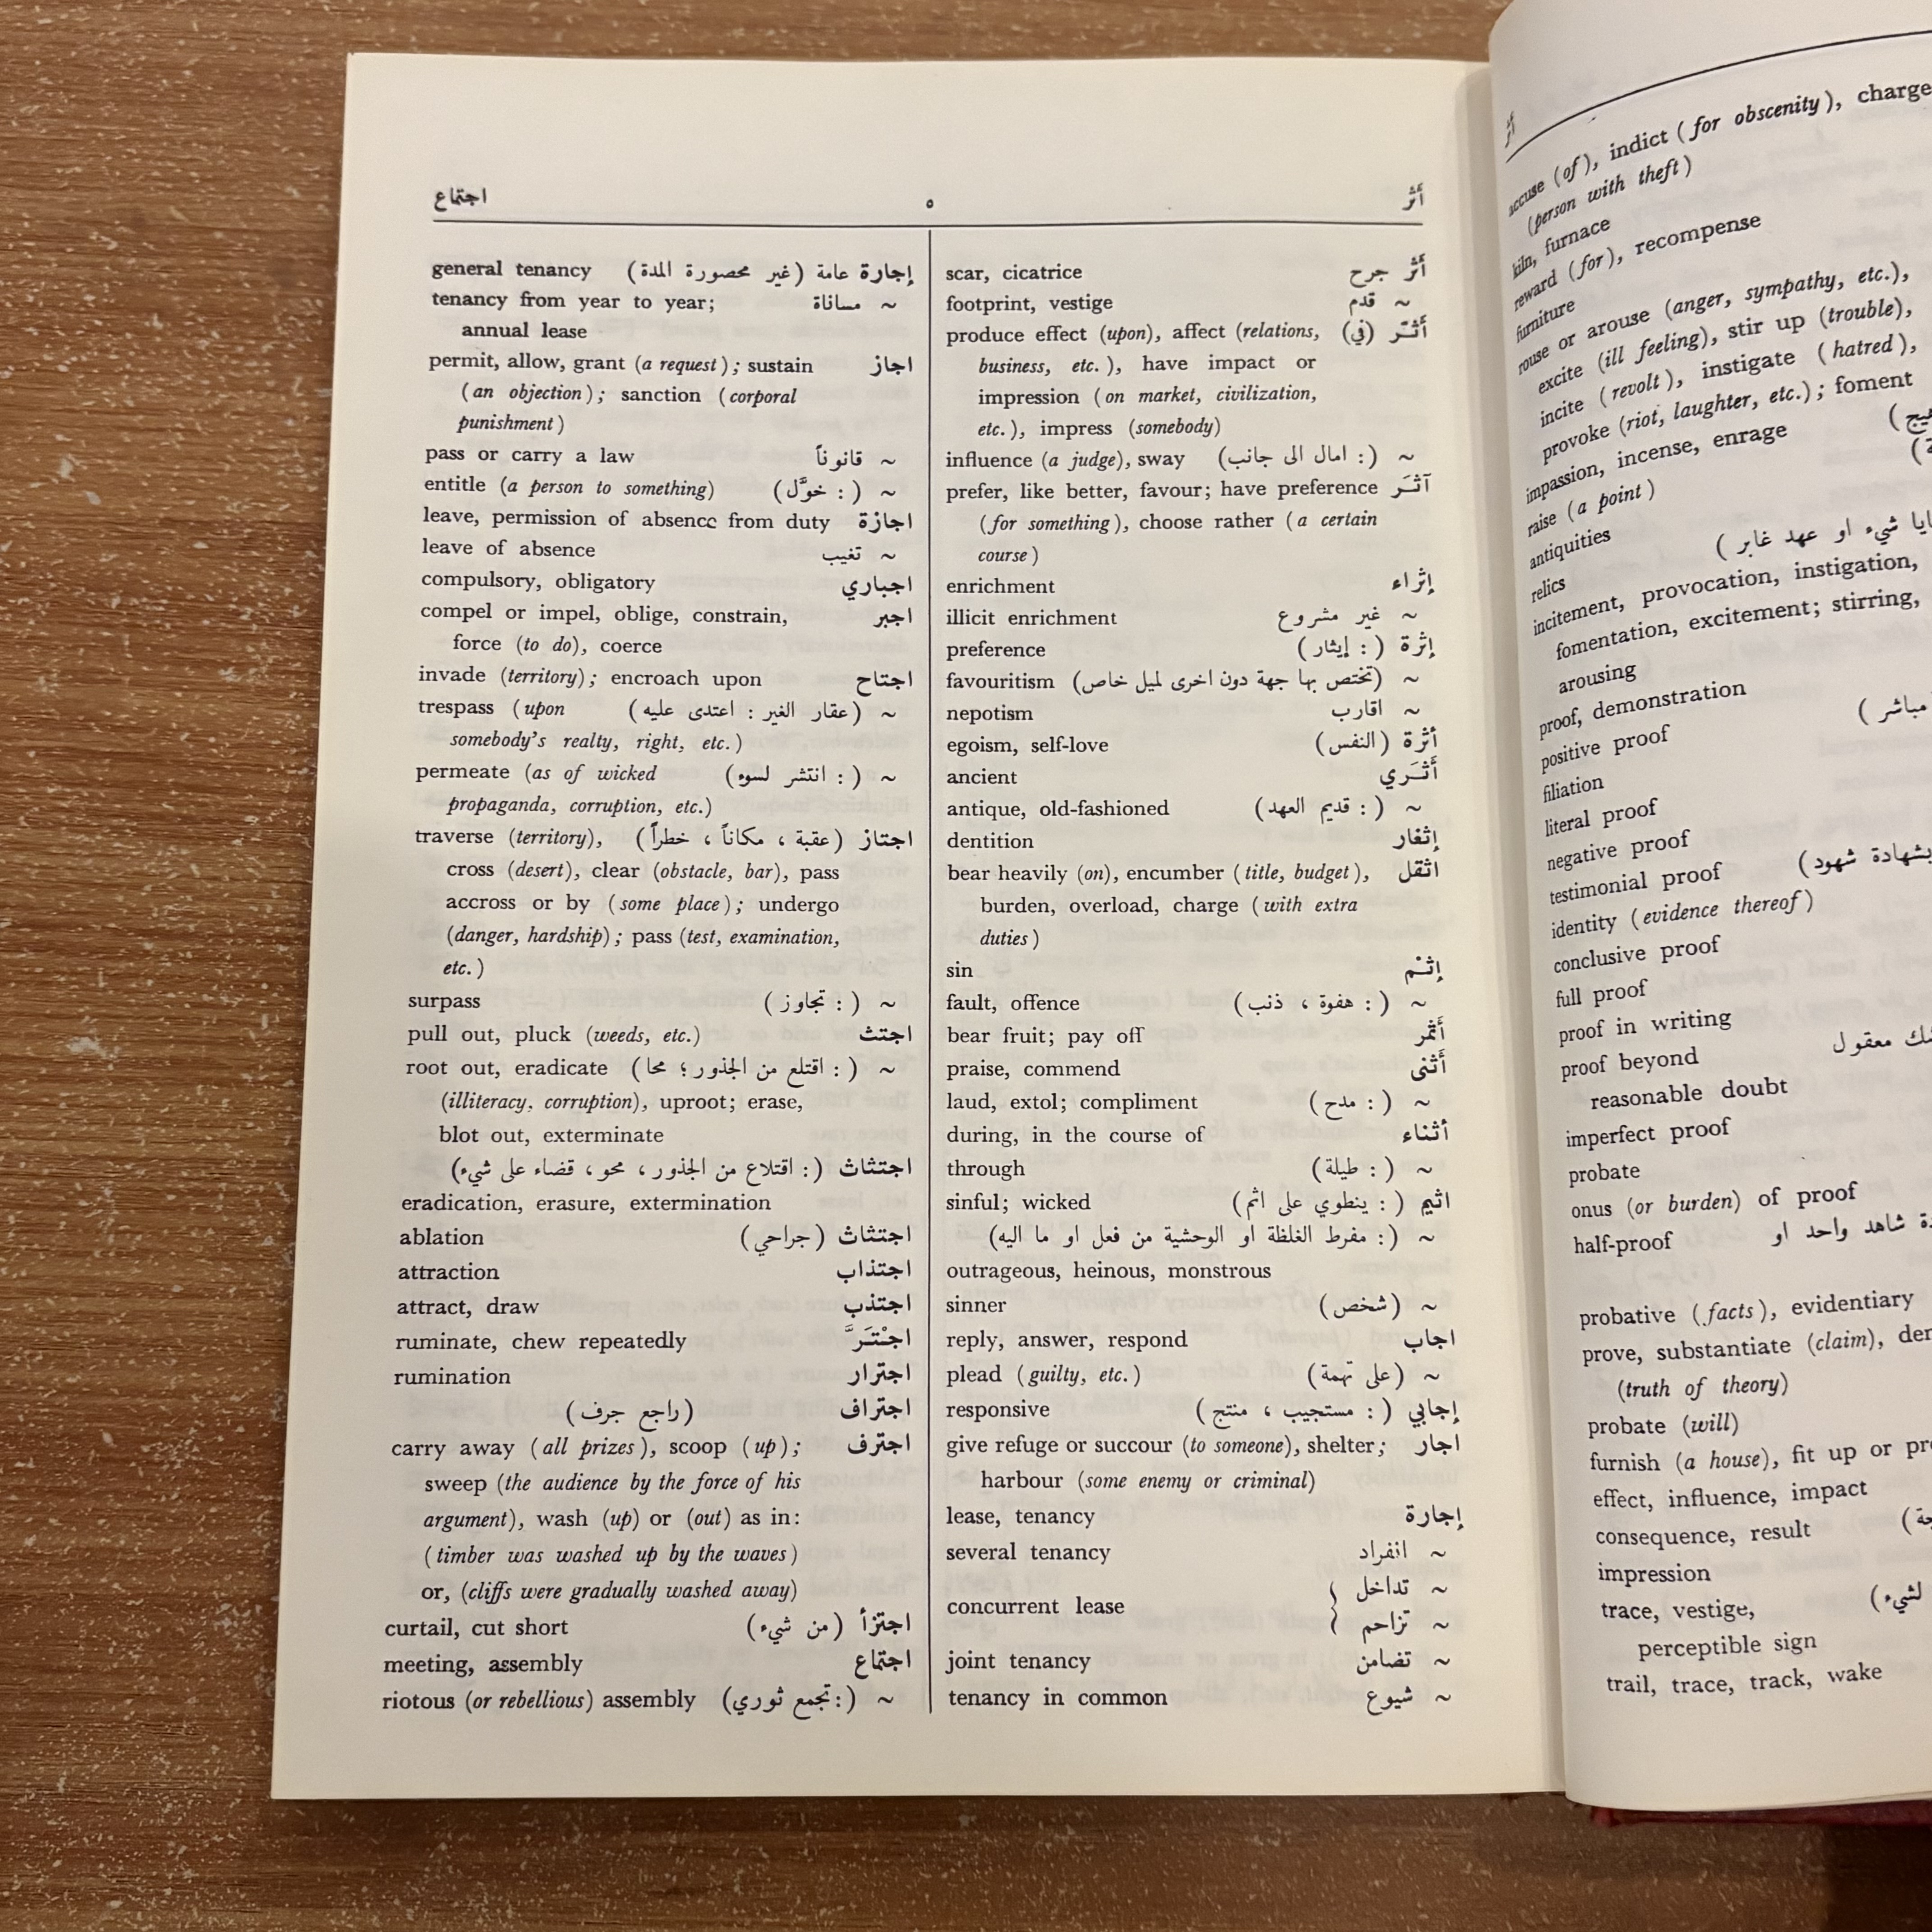 أثر
accuse (of), indict (for obscenity), charge
(person with theft)
kiln, furnace
reward (for), recompense
furniture
rouse or arouse (anger, sympathy, etc.),
excite (ill feeling), stir up (trouble),
incite (revolt), instigate (hatred),
provoke (riot, laughter, etc.); foment
impassion, incense, enrage
raise (a point)
antiquities
شيء او عهد غابر) relics
incitement, provocation, instigation,
fomentation, excitement; stirring,
arousing
proof, demonstration
مباشر) positive proof
filiation
literal proof
negative proof
بشهادة شهود) testimonial proof
identity (evidence thereof)
conclusive proof
full proof
proof in writing
معقول proof beyond
reasonable doubt
imperfect proof
probate
onus (or burden) of proof
شاهد واحد او half-proof
probative (facts), evidentiary
prove, substantiate (claim),
(truth of theory)
probate (will)
furnish (a house), fit up or
effect, influence, impact
consequence, result
impression
لشيء) trace, vestige,
perceptible sign
trail, trace, track, wake
أثر ٥ اجتماع
أثر جرح scar, cicatrice
~ قدم footprint, vestige
أثـّر (في) produce effect (upon), affect (relations,
business, etc.), have impact or
impression (on market, civilization,
etc.), impress (somebody)
~ (: امال الى جانب) influence (a judge), sway
آثـَر prefer, like better, favour; have preference
(for something), choose rather (a certain
course)
إثراء enrichment
~ غير مشروع illicit enrichment
إثرة (: إيثار) preference
~ (تختص بها جهة دون اخرى لميل خاص) favouritism
~ اقارب nepotism
أثرة (النفس) egoism, self-love
أثـَري ancient
~ (: قديم العهد) antique, old-fashioned
إثغار dentition
اثقل bear heavily (on), encumber (title, budget),
burden, overload, charge (with extra
duties)
إثـْم sin
~ (: هفوة ، ذنب) fault, offence
أثمر bear fruit; pay off
أثنى praise, commend
~ (: مدح) laud, extol; compliment
أثناء during, in the course of
~ (: طيلة) through
اثيم (: ينطوي على اثم) sinful; wicked
~ (: مفرط الغلظة او الوحشية من فعل او ما اليه)
outrageous, heinous, monstrous
~ (شخص) sinner
اجاب reply, answer, respond
~ (على تهمة) plead (guilty, etc.)
إجابي (: مستجيب ، منتج) responsive
اجار give refuge or succour (to someone), shelter;
harbour (some enemy or criminal)
إجارة lease, tenancy
~ انفراد several tenancy
~ تداخل
concurrent lease
~ تزاحم
~ تضامن joint tenancy
~ شيوع tenancy in common
إجارة عامة (غير محصورة المدة) general tenancy
~ مساناة tenancy from year to year;
annual lease
اجاز permit, allow, grant (a request); sustain
(an objection); sanction (corporal
punishment)
~ قانوناً pass or carry a law
~ (: خوّل) entitle (a person to something)
اجازة leave, permission of absence from duty
~ تغيب leave of absence
اجباري compulsory, obligatory
اجبر compel or impel, oblige, constrain,
force (to do), coerce
اجتاح invade (territory); encroach upon
~ (عقار الغير : اعتدى عليه) trespass (upon
somebody's realty, right, etc.)
~ (: انتشر لسوء) permeate (as of wicked
propaganda, corruption, etc.)
اجتاز (عقبة ، مكاناً ، خطراً) traverse (territory),
cross (desert), clear (obstacle, bar), pass
accross or by (some place); undergo
(danger, hardship); pass (test, examination,
etc.)
~ (: تجاوز) surpass
اجتث pull out, pluck (weeds, etc.)
~ (: اقتلع من الجذور ؛ محا) root out, eradicate
(illiteracy, corruption), uproot; erase,
blot out, exterminate
اجتثاث (: اقتلاع من الجذور ، محو ، قضاء على شيء)
eradication, erasure, extermination
اجتثاث (جراحي) ablation
اجتذاب attraction
اجتذب attract, draw
اجـْتـَرَّ ruminate, chew repeatedly
اجترار rumination
اجتراف (راجع جرف)
اجترف carry away (all prizes), scoop (up);
sweep (the audience by the force of his
argument), wash (up) or (out) as in:
(timber was washed up by the waves)
or, (cliffs were gradually washed away)
اجتزأ (من شيء) curtail, cut short
اجتماع meeting, assembly
~ (: تجمع ثوري) riotous (or rebellious) assembly